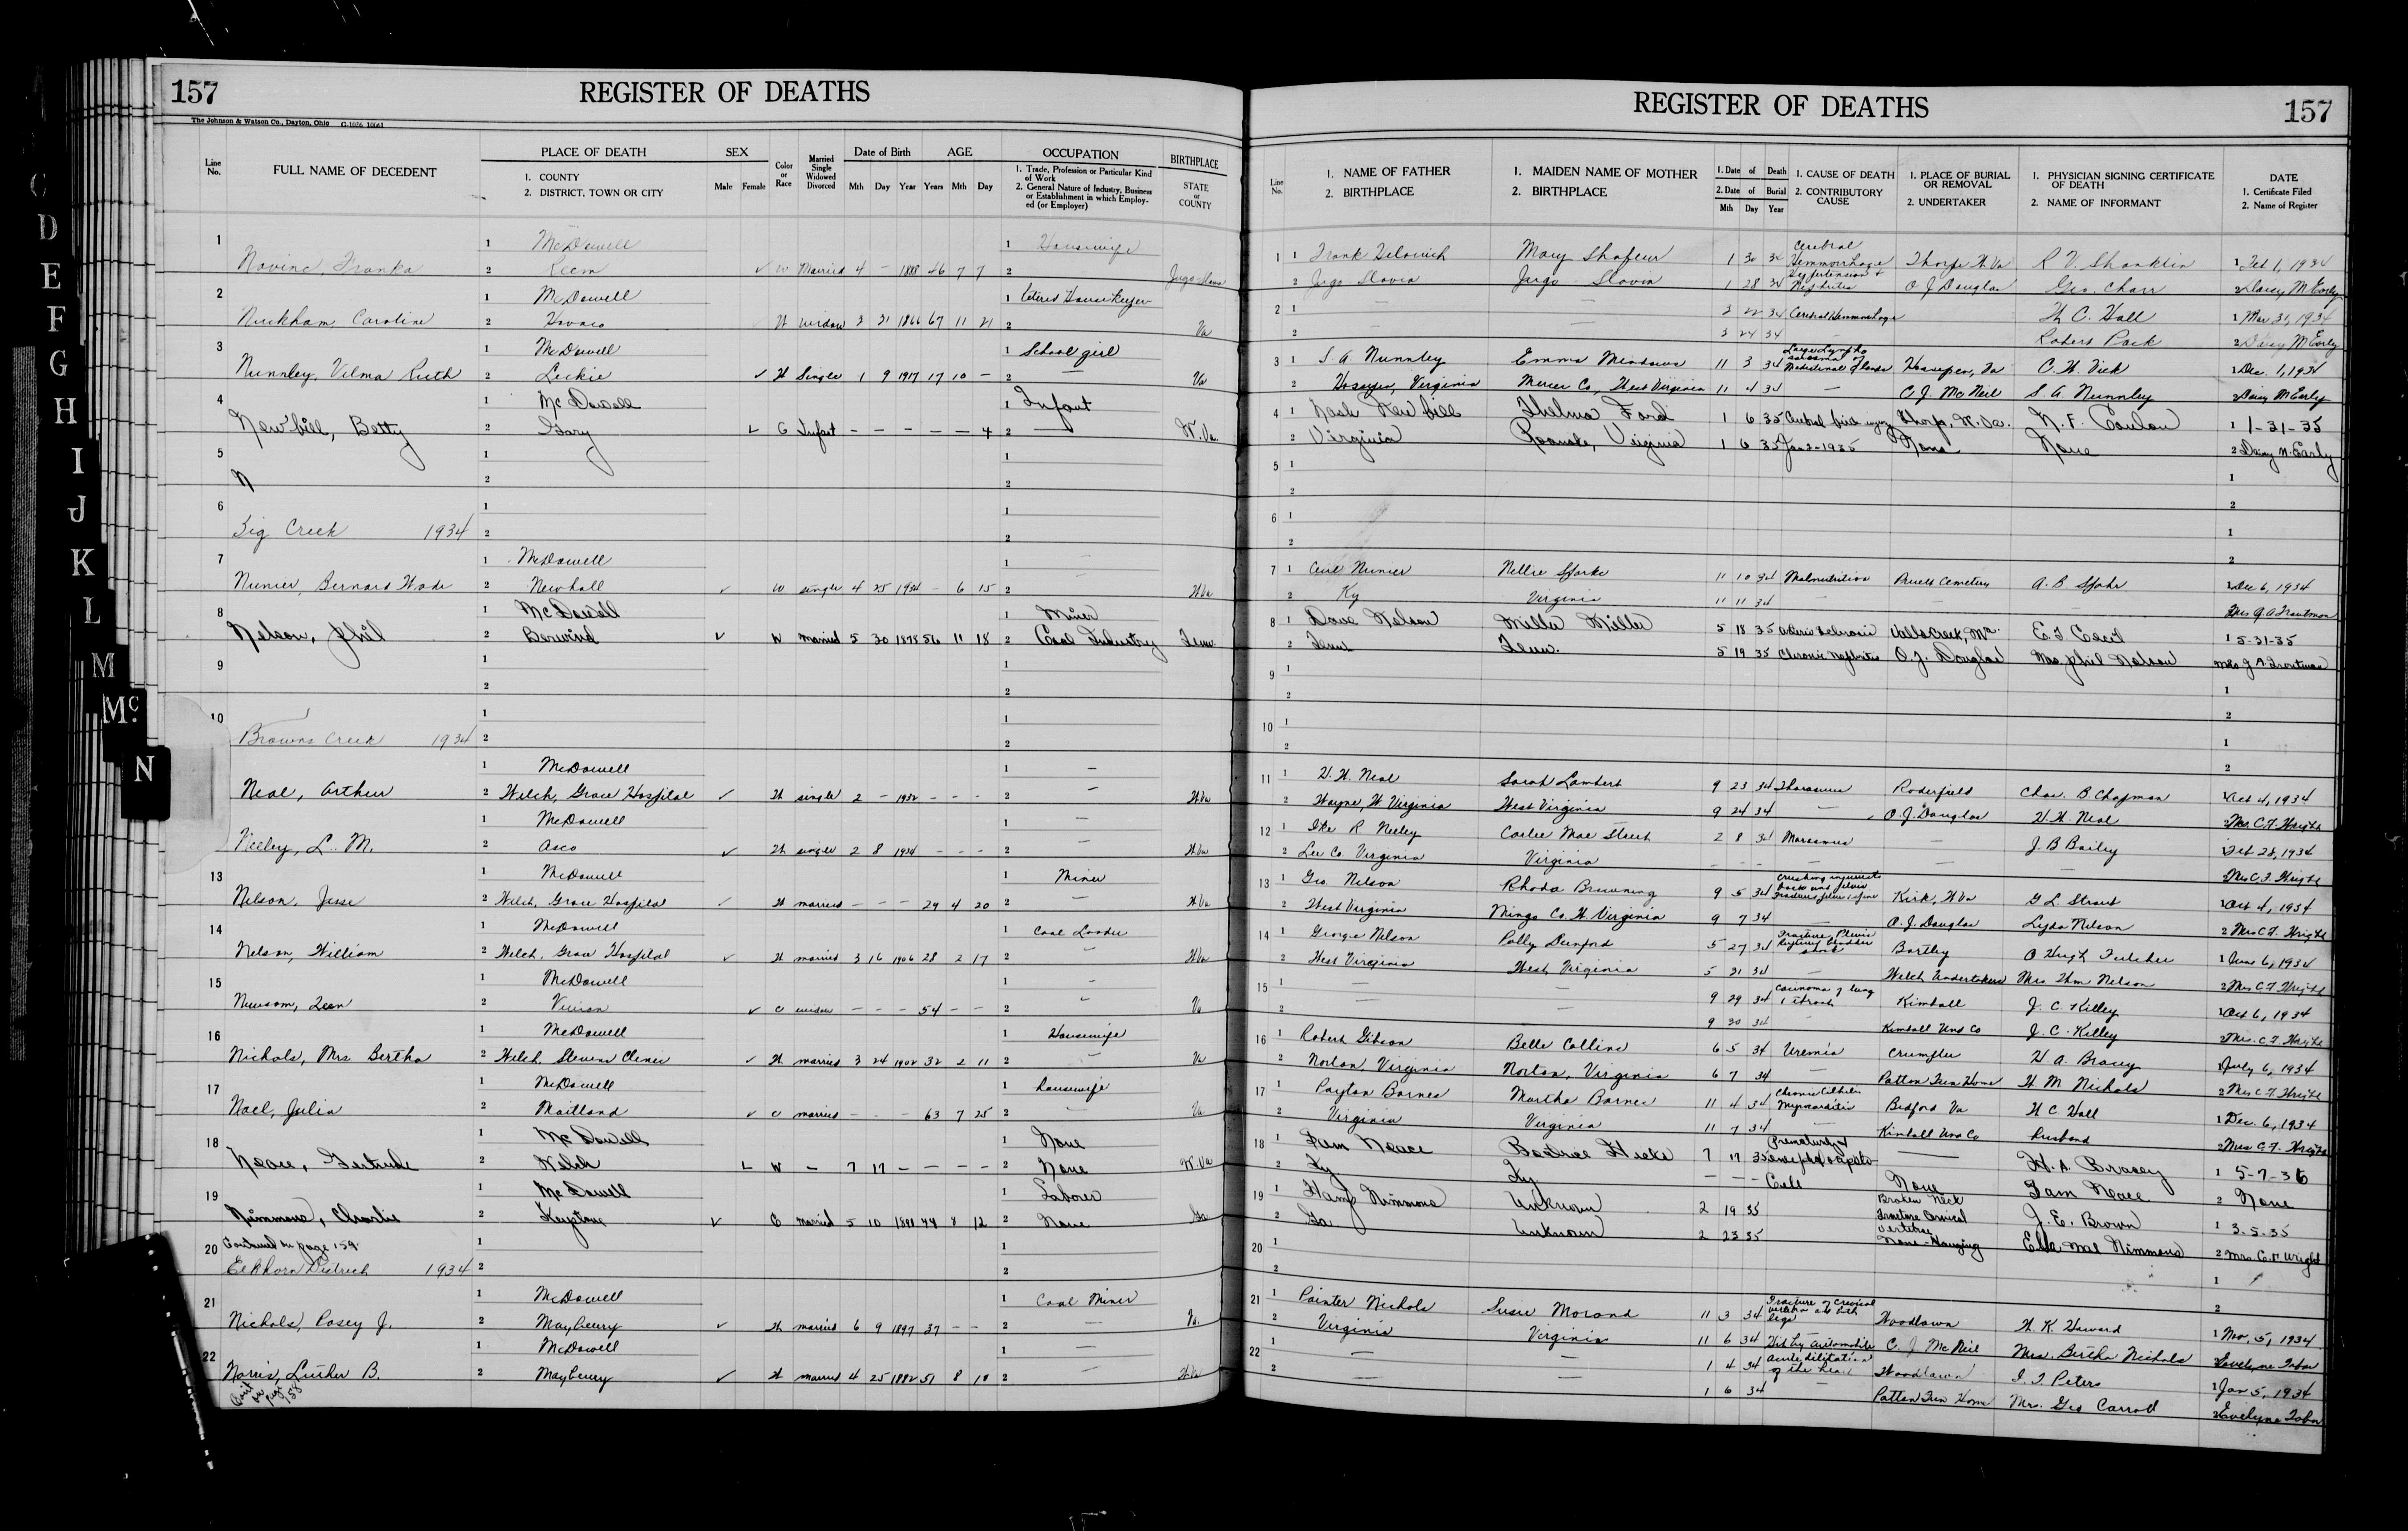 157 REGISTER OF DEATHS
The Johnson & Watson Co., Dayton, Ohio
Line No. FULL NAME OF DECEDENT PLACE OF DEATH 1. COUNTY 2. DISTRICT, TOWN OR CITY SEX Male Female Color or Race Married Single Widowed Divorced Date of Birth Mth Day Year AGE Years Mth Day OCCUPATION 1. Trade, Profession or Particular Kind of Work 2. General Nature of Industry, Business or Establishment in which Employed (or Employer) BIRTHPLACE STATE or COUNTY
1 1 McDowell 1 Housewife
Novinc, Franka 2 ✓ W Married 4 - 1888 46 7 7 2 Jugo-Slavia
2 1 McDowell 1 Retired Housekeeper
Caroline 2 Havaco W widow 3 21 1866 67 11 21 2 Va
3 1 McDowell 1 School girl
Nunnley, Velma Ruth 2 Leckie ✓ W Single 1 9 1917 17 10 - 2 - Va
4 1 McDowell 1 Infant
Newbill, Betty 2 Gary ✓ C Infant - - - - - 4 2 - W. Va.
5 1 1
N 2 2
6 1 1
Big Creek 1934 2 2
7 1 McDowell 1 -
Bernard Wade 2 Newhall ✓ W single 4 25 1934 - 6 15 2 W Va
8 1 McDowell 1 Miner
Nelson, Phil 2 Berwind ✓ W married 5 30 1878 56 11 18 2 Coal Industry Tenn
9 1
2 2
10 1 1
Browns Creek 1934 2 2
1 McDowell 1 -
Neal, Arthur 2 Welch, Grace Hospital ✓ W single 2 - 1932 - - - 2 - W Va
1 McDowell 1 -
Neeley, L. M. 2 Asco ✓ W single 2 8 1934 - - - 2 - W Va
13 1 McDowell 1 Miner
Nelson, Jesse 2 Welch, Grace Hospital ✓ W married - - - 29 4 20 2 - W Va
14 1 McDowell 1 Coal Loader
Nelson, William 2 Welch, Grace Hospital ✓ W married 3 16 1906 28 2 17 2 - W Va
15 1 McDowell 1 -
Newsom, 2 Vivian ✓ C widow - - - 54 - - 2 - Va
16 1 McDowell 1 Housewife
Nichols, Mrs Bertha 2 Welch, Stevens Clinic ✓ W married 3 24 1902 32 2 11 2 - Va
17 1 McDowell 1 housewife
Noel, Julia 2 Maitland ✓ C married - - - 63 7 25 2 - Va
18 1 McDowell 1 None
Neace, Gertrude 2 Welch ✓ W - 7 17 - - - - 2 None W. Va
19 1 McDowell 1 Laborer
Nimmons, Charlie 2 Keystone ✓ C married 5 10 1890 44 8 12 2 None Ga
20 Continued on page 159 1 1
Elkhorn District 1934 2 2
21 1 McDowell 1 Coal Miner
Nichols, Posey J. 2 Maybeury ✓ W married 6 9 1897 37 - - 2 - Va.
22 1 McDowell 1 -
Norris, Luther B. 2 Maybeury ✓ W married 4 25 1882 51 8 10 2 - W Va
Cont on page 158
C D E F G H I J K L M Mc. N
REGISTER OF DEATHS 157
Line No. 1. NAME OF FATHER 2. BIRTHPLACE 1. MAIDEN NAME OF MOTHER 2. BIRTHPLACE 1. Date of Death 2. Date of Burial Mth Day Year 1. CAUSE OF DEATH 2. CONTRIBUTORY CAUSE 1. PLACE OF BURIAL OR REMOVAL 2. UNDERTAKER 1. PHYSICIAN SIGNING CERTIFICATE OF DEATH 2. NAME OF INFORMANT DATE 1. Certificate Filed 2. Name of Register
1 1 Frank Mary 1 30 34 Cerebral Hemmorrhage Thorpe W Va R V. Shanklin 1 Feb 1, 1934
2 Jugo Slavia Jugo Slavia 1 28 34 Hypertension + Nephritis O J Douglas Geo. Charr 2 Daisy M Early
2 1 - - 3 22 34 Cerebral Hemmorhage W C. Hall 1 Mar 31, 1934
2 - - 3 24 34 Robert Pack 2 Daisy M Early
3 1 S. A. Nunnley Emma Meadows 11 3 34 Large Lympho sarcoma of Mediastinal glands C. W. Vick 1 Dec. 1, 1934
2 Virginia Mercer Co, West Virginia 11 4 34 - C. J. McNeil S. A. Nunnley 2 Daisy M Early
4 1 Nash Newbill Thelma Ford 1 6 35 Cerebral birth injury Thorpe, W. Va. N. F. Coulon 1 1-31-35
2 Virginia Roanoke, Virginia 1 6 35 Jan 2-1935 None None 2 Daisy M. Early
5 1 1
2 2
6 1 1
2 2
7 1 Nellie 11 10 34 Malnutrition Cemetery A. B. 1 Dec 6, 1934
2 Ky Virginia 11 11 34 - - - Mrs J. A Troutman
8 1 Dave Nelson Milla Miller 5 18 35 E. F. Cecil 1 5-31-35
2 Tenn Tenn. 5 19 35 Chronic Nephritis O. J. Douglas Mrs Phil Nelson Mrs J A Troutman
9 1 1
2 2
10 1 1
2 2
11 1 W. W. Neal Sarah Lambert 9 23 34 Roderfield Chas. B Chapman 1 Oct 4, 1934
2 Wayne, W Virginia West Virginia 9 24 34 - O. J. Douglas W. W Neal 2 Mrs C. F. Wright
12 1 Ike R Neeley Mae Street 2 8 34 Marasmus - J. B Bailey 1 Feb 28, 1934
2 Lee Co. Virginia Virginia - - - - Mrs C. F. Wright
13 1 Geo Nelson Rhoda Browning 9 5 34 Crushing injuries to back and pelvis fractures pelvis & spine Kirk, W Va G L Straub 1 Oct 4, 1934
2 West Virginia Mingo Co. W Virginia 9 7 34 - O. J. Douglas Lyda Nelson 2 Mrs C F. Wright
14 1 George Nelson Polly Dunford 5 27 34 Fracture Pelvis Rupture bladder shock Bartley O Hugh Fulcher 1 June 6, 1934
2 West Virginia West Virginia 5 31 34 - Welch Undertakers Mrs Wm Nelson 2 Mrs C F Wright
15 1 - - 9 29 34 Carcinoma of lung Kimball J. C. Killey 1 Oct 6, 1934
2 - - 9 30 34 - Kimball Und Co J. C. Killey 2 Mrs. C. F. Wright
16 1 Robert Gibson Belle Collins 6 5 34 Uremia Crumpler H A. Bracey 1 July 6, 1934
2 Norton, Virginia Norton, Virginia 6 7 34 - Patton Fun Home W. M Nichols 2 Mrs C F. Wright
17 1 Payton Barnes Martha Barnes 11 4 34 Chronic Myocarditis Bedford Va W C Hall 1 Dec. 6, 1934
2 Virginia Virginia 11 7 34 - Kimball Und Co husband 2 Mrs C. F. Wright
18 1 Sam Neace Beatrice Hicks 7 17 35 Prematurity - H. A. Bracey 1 5-7-36
2 Ky Ky - - - None Sam Neace 2 None
19 1 Ham Nimmons Unknown 2 19 35 Broken Neck Fracture Cervical Vertebrae J. E. Brown 1 3-5-35
2 Ga Unknown 2 23 35 None-Hanging Ella Mae Nimmons 2 Mrs. C. F. Wright
20 1 1
2 2
21 1 Painter Nichols Susie Morand 11 3 34 Fracture of Cervical vertebra and both legs Woodlawn W. K. Harvard 1 Nov. 5, 1934
2 Virginia Virginia 11 6 34 Hit by automobile C. J McNeil Mrs. Bertha Nichols 2 Evelyne Tabor
22 1 - - 1 4 34 acute dilitation of the heart Woodlawn I. I. Peters 1 Jan 5, 1934
2 - - 1 6 34 Patton Fun Home Mrs. Geo Carroll 2 Evelyne Tabor